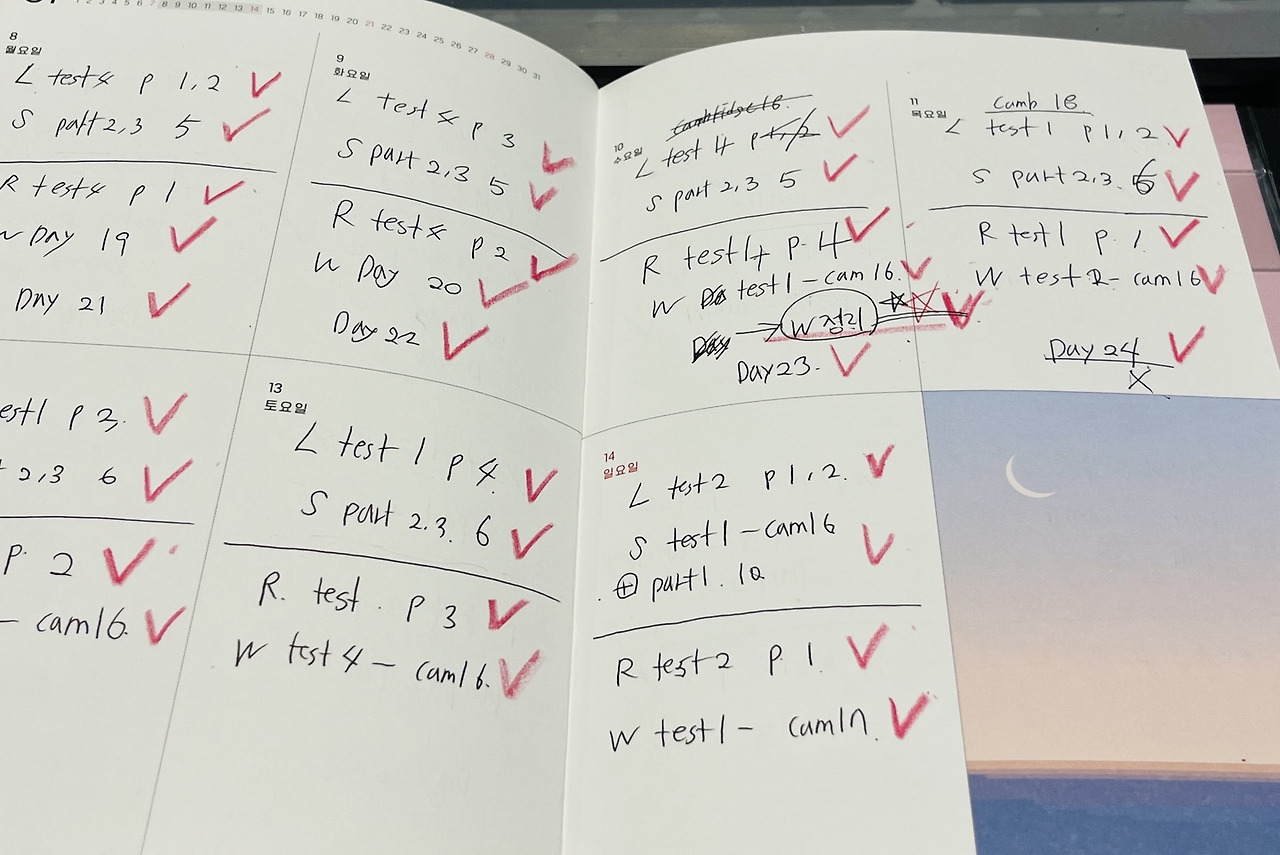 1 2 3 4 5 6 7 8 9 10 11 12 13 14 15 16 17 18 19 20 21 22 23 24 25 26 27 28 29 30 31
8
월요일
L test4 p 1,2
S part 2,3 5
R test4 p 1
W Day 19
Day 21
9
화요일
L test4 p 3
S part 2,3 5
R test4 p 2
W Day 20
Day 22
10
수요일
Cambridge 16.
L test 4 p 1,2
S part 2,3 5
R test 4 p. 4
W test1 - cam 16.
W 정리
Day 23.
11
목요일
Camb 16
L test 1 p 1, 2
S part 2,3. 6
R test 1 p. 1
W test 2 - cam 16
Day 24
est1 p 3.
2,3 6
p. 2
- cam16.
13
토요일
L test 1 p 4.
S part 2.3. 6
R. test. p 3
W test 4 - cam16.
14
일요일
L test2 p 1, 2.
S test1 - cam16
⊕ part1. 10
R test2 p. 1.
W test1 - cam17.